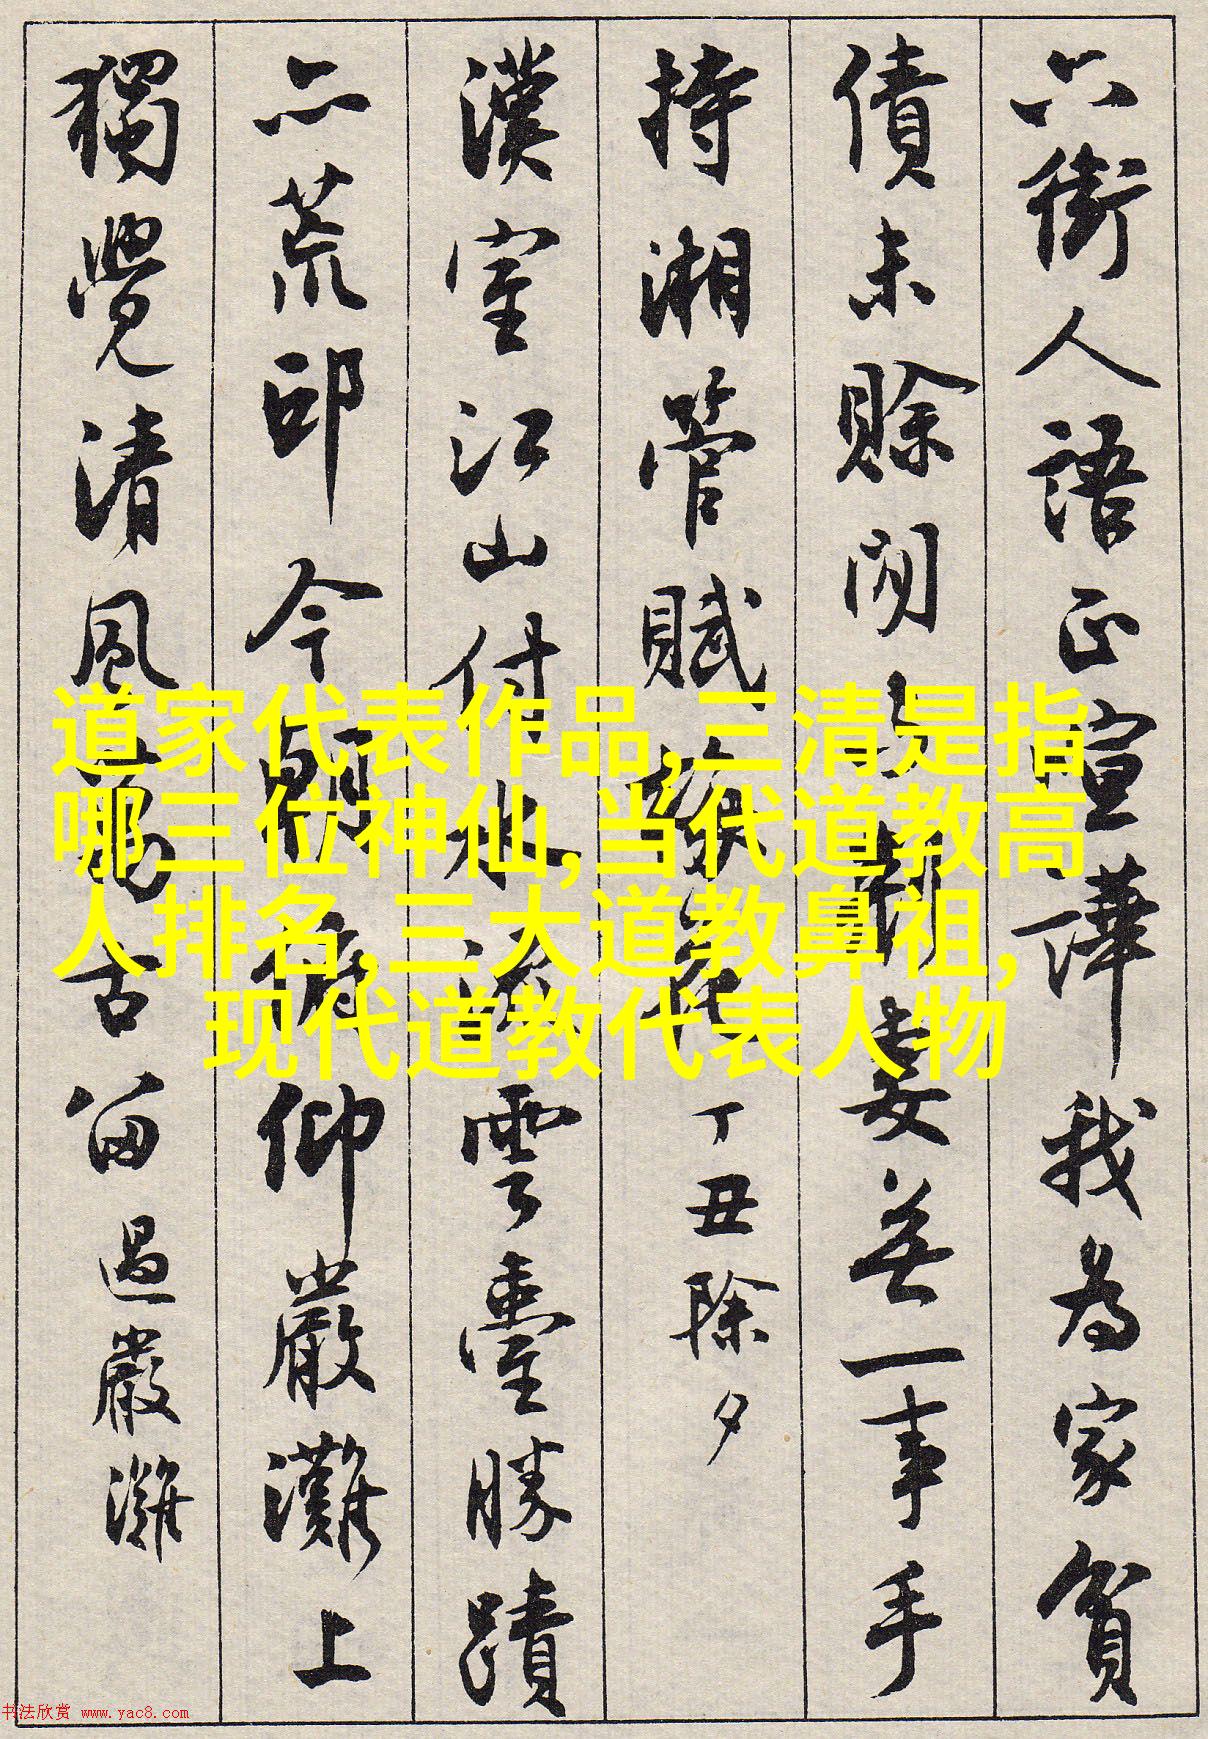 六街人語正喧譁我為家貧
債未賒閒妻無一事手
持湘管賦梅花丁丑除夕
漢室江山付水流雲臺勝蹟
亦荒邱今朝俯仰嚴灘上
獨覺清風萬古留過嚴灘
道家代表作品,三清是指
哪三位神仙,当代道教高
人排名,三大道教鼻祖,
现代道教代表人物
书法欣赏 www.yac8.com